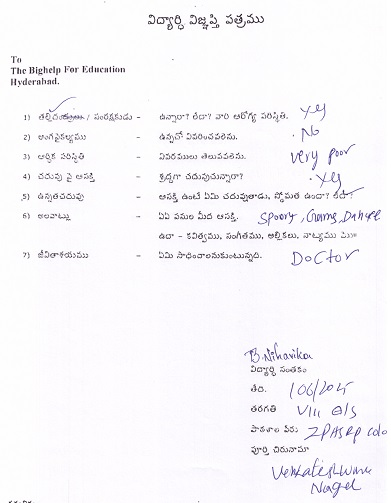 విద్యార్ధి విజ్ఞప్తి పత్రము
To
The Bighelp For Education
Hyderabad.
1) తల్లిదండ్రులు / సంరక్షకుడు - ఉన్నారా? లేదా? వారి ఆరోగ్య పరిస్థితి. Yes
2) అంగవైకల్యము - ఉన్నచో వివరించవలెను. No
3) ఆర్ధిక పరిస్థితి - వివరములు తెలుపవలెను. Very poor
4) చదువు పై ఆసక్తి - శ్రద్ధగా చదువుచున్నారా? Yes
5) ఉన్నతచదువు - ఆసక్తి ఉంటే ఏమి చదువుతాడు, స్తోమత ఉందా? లేదా?
6) అలవాట్లు - ఏఏ పనుల మీద ఆసక్తి.
ఉదా - కవిత్వము, సంగీతము, అల్లికలు, నాట్యము
7) జీవితాశయము - ఏమి సాధించాలనుకుంటున్నది. DOCTOR
B. Niharika
విద్యార్ధి సంతకం
తేది.
తరగతి VIII
పాఠశాల పేరు
పూర్తి చిరునామా
Nagar